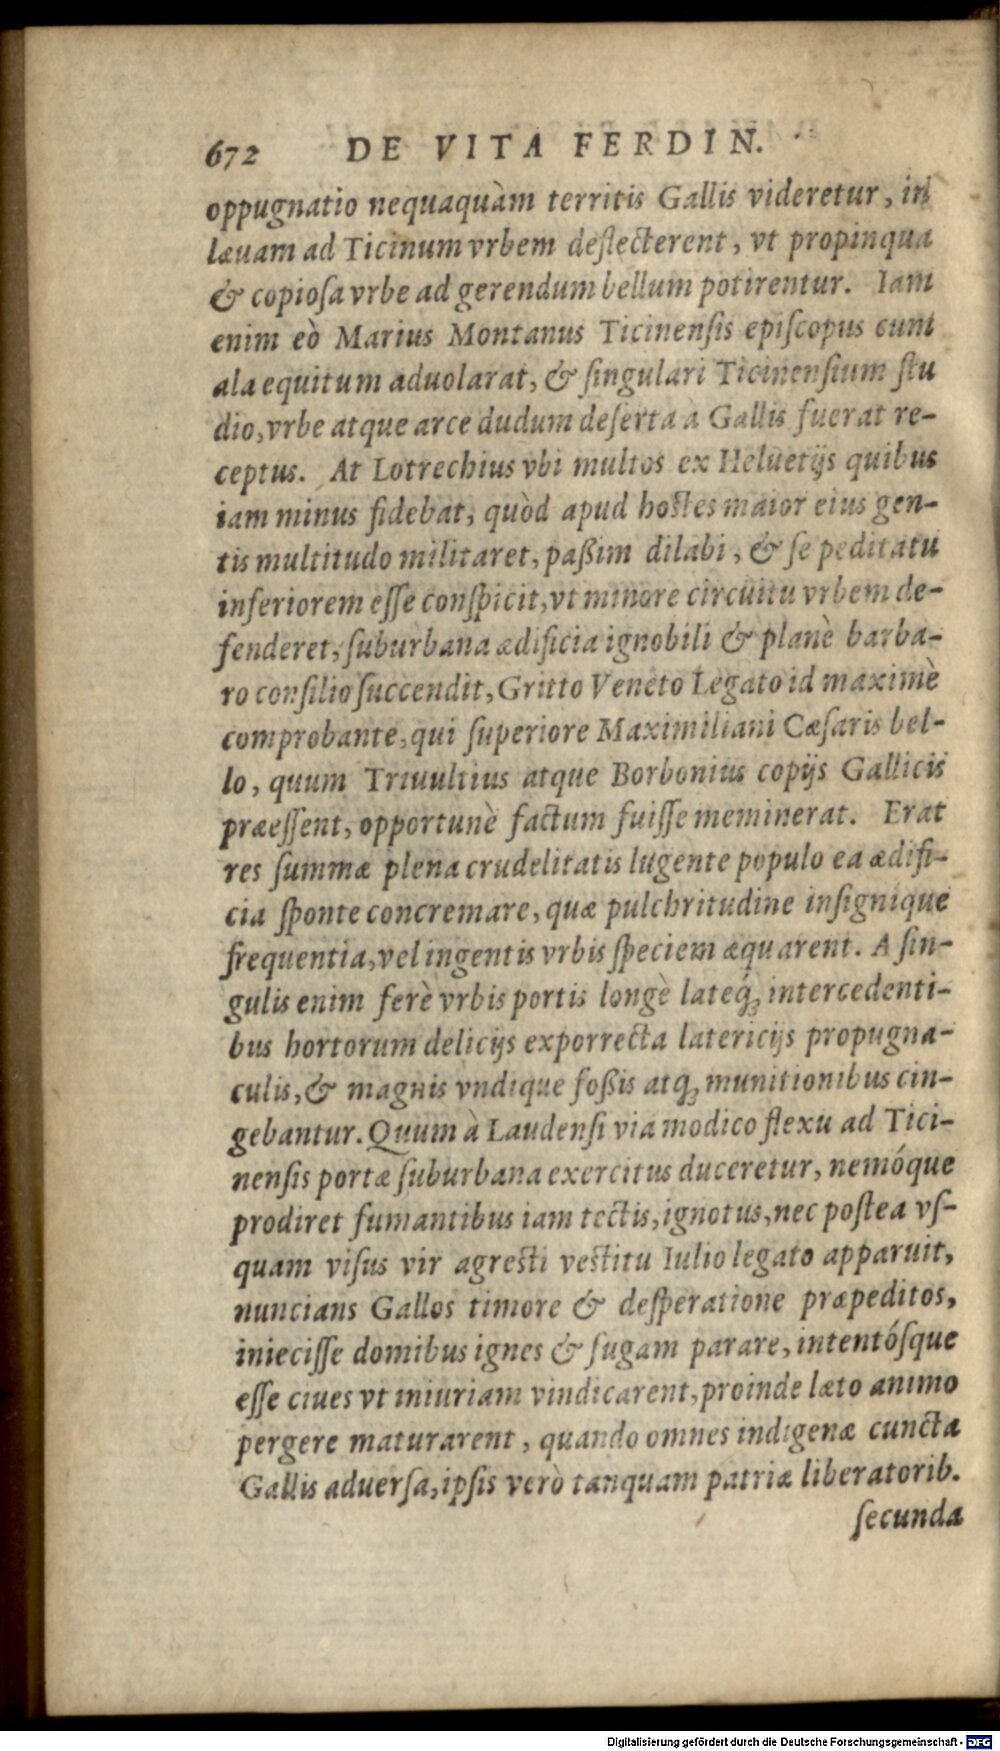 672 DE VITA FERDIN.
oppugnatio nequaquàm territis Gallis videretur, in
læuam ad Ticinum vrbem deflecterent, vt propinqua
& copioſa vrbe ad gerendum bellum potirentur. Iam
enim eò Marius Montanus Ticinenſis epiſcopus cum
ala equitum aduolarat, & ſingulari Ticinenſium ſtu
dio, vrbe atque arce dudum deſerta à Gallis fuerat re-
ceptus. At Lotrechius vbi multos ex Heluetijs quibus
iam minus fidebat, quòd apud hoſtes maior eius gen-
tis multitudo militaret, paßim dilabi, & ſe peditatu
inferiorem eſſe conſpicit, vt minore circuitu vrbem de-
fenderet, ſuburbana ædificia ignobili & planè barba-
ro conſilio ſuccendit, Gritto Veneto Legato id maximè
comprobante, qui ſuperiore Maximiliani Cæſaris bel-
lo, quum Triuultius atque Borbonius copijs Gallicis
præeſſent, opportunè factum fuiſſe meminerat. Erat
res ſummæ plena crudelitatis lugente populo ea ædifi-
cia ſponte concremare, quæ pulchritudine inſignique
frequentia, vel ingentis vrbis ſpeciem æquarent. A ſin-
gulis enim ferè vrbis portis longè lateq́; intercedenti-
bus hortorum delicijs exporrecta latericijs propugna-
culis, & magnis vndique foßis atq; munitionibus cin-
gebantur. Quum à Laudenſi via modico flexu ad Tici-
nenſis portæ ſuburbana exercitus duceretur, nemóque
prodiret fumantibus iam tectis, ignotus, nec poſtea vſ-
quam viſus vir agreſti veſtitu Iulio legato apparuit,
nuncians Gallos timore & deſperatione præpeditos,
inieciſſe domibus ignes & fugam parare, intentóſque
eſſe ciues vt iniuriam vindicarent, proinde læto animo
pergere maturarent, quando omnes indigenæ cuncta
Gallis aduerſa, ipſis verò tanquam patriæ liberatorib.
ſecunda
Digitalisierung gefördert durch die Deutsche Forschungsgemeinschaft - DFG